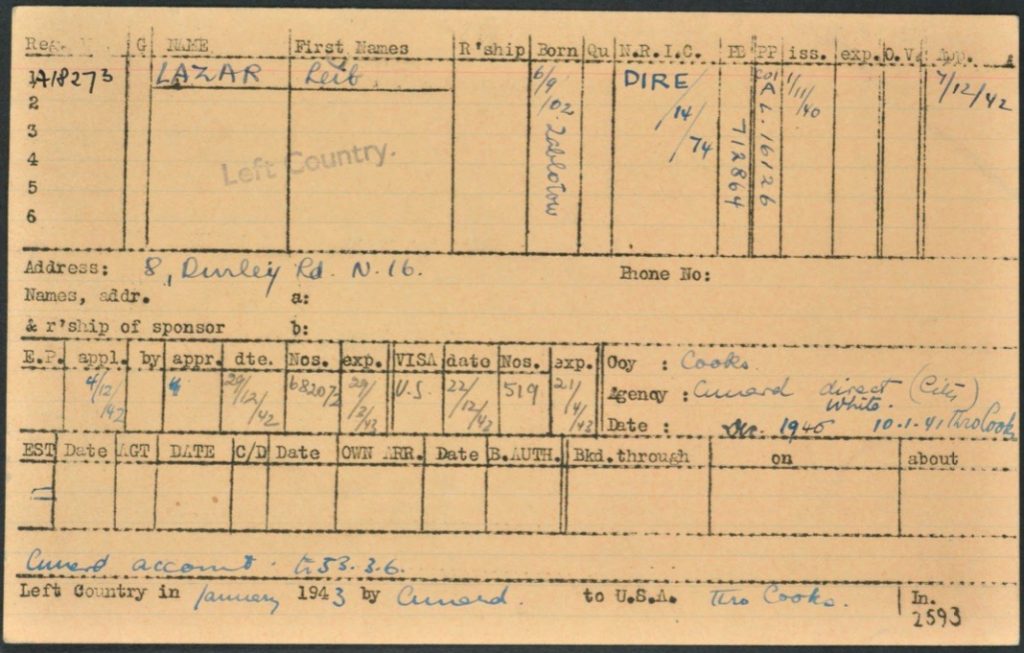 Reg. G NAME First Names R'ship Born Qu N.R.I.C. PB PP iss. exp. O.V. App.
1 A18273 LAZAR Leib 6/9/02. Zablotow DIRE/14/74 712864 COI A L. 16126 1/11/40 7/12/42
2
3
4
5
6
Left Country.
Address: 8, Durley Rd. N. 16. Phone No:
Names, addr. a:
& r'ship of sponsor b:
E.P. appl. by appr. dte. Nos. exp. VISA date Nos. exp. Ccy : Cooks
4/12/42 29/12/42 68207/2 29/2/43 U.S. 22/12/42 519 21/4/43 Agency : Cunard direct (City)
White.
Date : 1940 10.1.41 thro Cooks
EST Date AGT DATE C/D Date OWN ARR. Date B.AUTH. Bkd. through on about
Cunard account. 53.3.6.
Left Country in January 1943 by Cunard. to U.S.A. thro Cooks. In.
2593